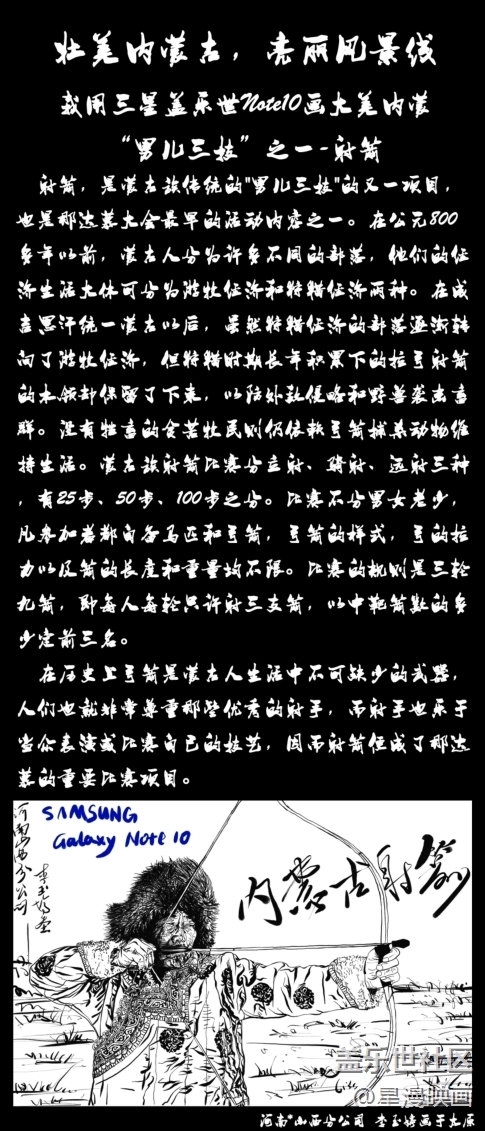 壮美内蒙古，亮丽风景线
我用三星盖乐世Note10画大美内蒙
“男儿三技”之一-射箭
射箭，是蒙古族传统的"男儿三技"的又一项目，
也是那达慕大会最早的活动内容之一。在公元800
多年以前，蒙古人分为许多不同的部落，他们的经
济生活大体可分为游牧经济和狩猎经济两种。在成
吉思汗统一蒙古以后，虽然狩猎经济的部落逐渐转
向了游牧经济，但狩猎时期长年积累下的拉弓射箭
的本领却保留了下来，以防外敌侵略和野兽袭击畜
群。没有牲畜的贫苦牧民则仍依靠弓箭捕杀动物维
持生活。蒙古族射箭比赛分立射、骑射、远射三种
，有25步、50步、100步之分。比赛不分男女老少，
凡参加者都自备马匹和弓箭，弓箭的样式，弓的拉
力以及箭的长度和重量均不限。比赛的规则是三轮
九箭，即每人每轮只许射三支箭，以中靶箭数的多
少定前三名。
在历史上弓箭是蒙古人生活中不可缺少的武器，
人们也就非常尊重那些优秀的射手，而射手也乐于
当众表演或比赛自己的技艺，因而射箭便成了那达
慕的重要比赛项目。
SAMSUNG
Galaxy Note 10
河南山西分公司
内蒙古射箭
盖乐世社区
@星漫映画
河南山西分公司 李玉婷画于太原